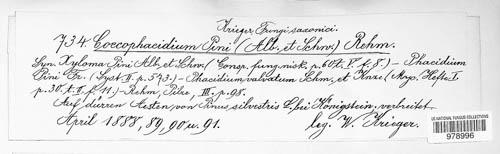 Krieger Fungi saxonici.
734 Coccophacidium Pini (Alb. et Schw.) Rehm.
Syn. Xyloma Pini Alb. et Schw. (Consp. fung. nisk. p. 60 t. V. f. 8.) – Phacidium
Pini Fr. (Syst. II. p. 573.) – Phacidium valvatum Schm. et Knze (Myc. Hefte I.
p. 30 t. II. f. 11.) – Rehm, Pilze, III. p. 98.
Auf dürren Aesten von Pinus silvestris L. bei Königstein, verbreitet.
April 1888, 89, 90 u. 91. leg. W. Krieger.
US NATIONAL FUNGUS COLLECTIONS
978996